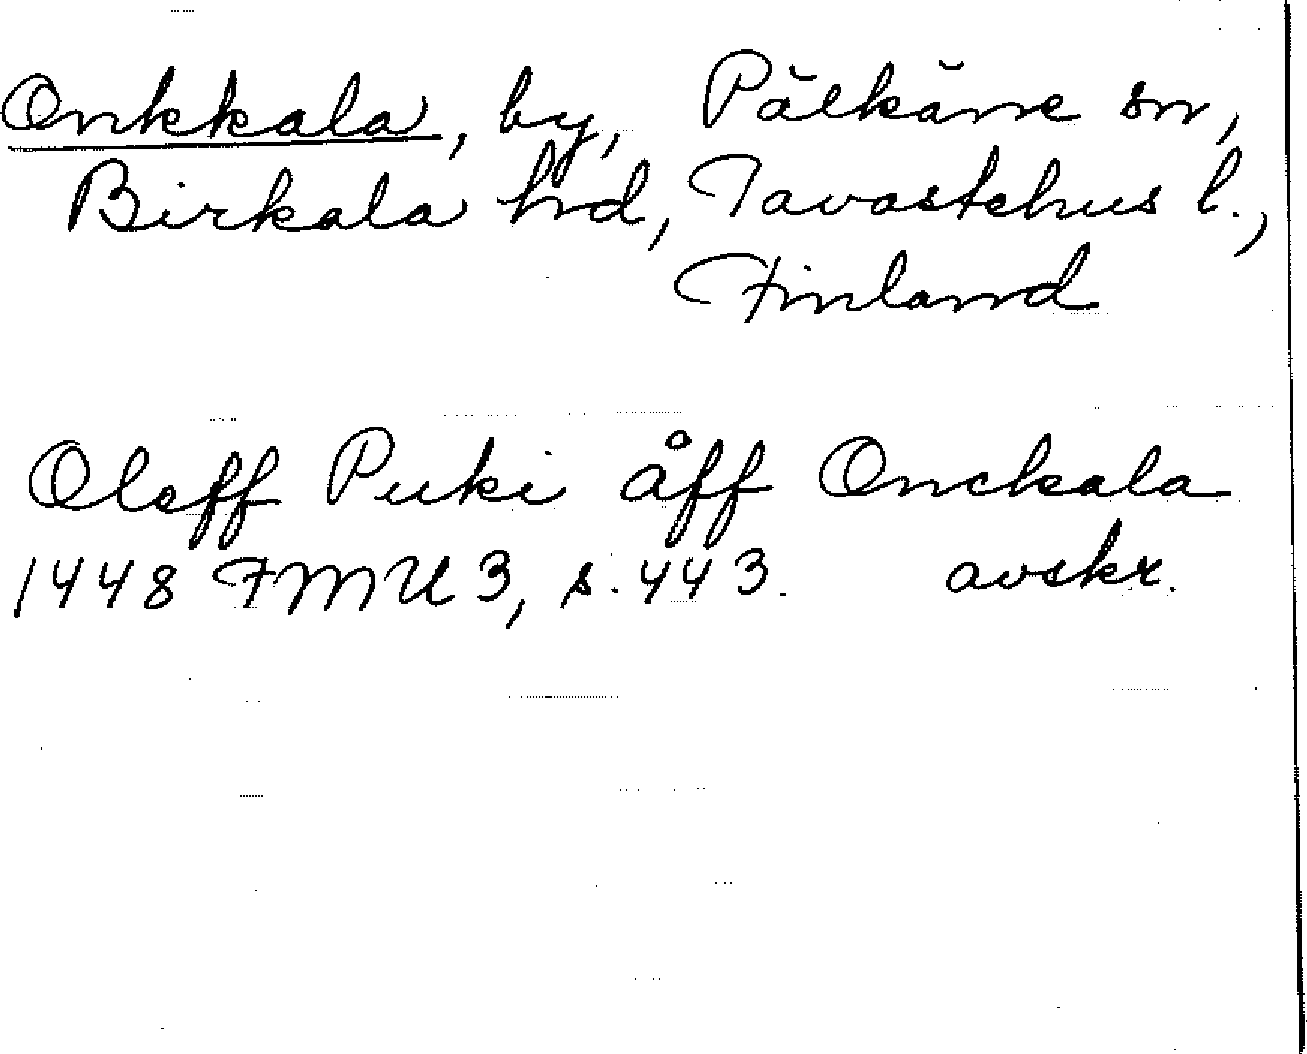 Onkkala, by, Pälkäne sn,
Birkala hd, Tavastehus l.,
Finland
Oleff Puki åff Onckala
1448 FMU 3, s. 443. avskr.